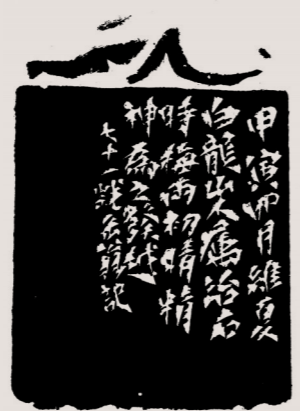 甲寅四月維夏
白龍山人屬治石
時梅雨初晴精
神為之發越
七十一歲缶翁記